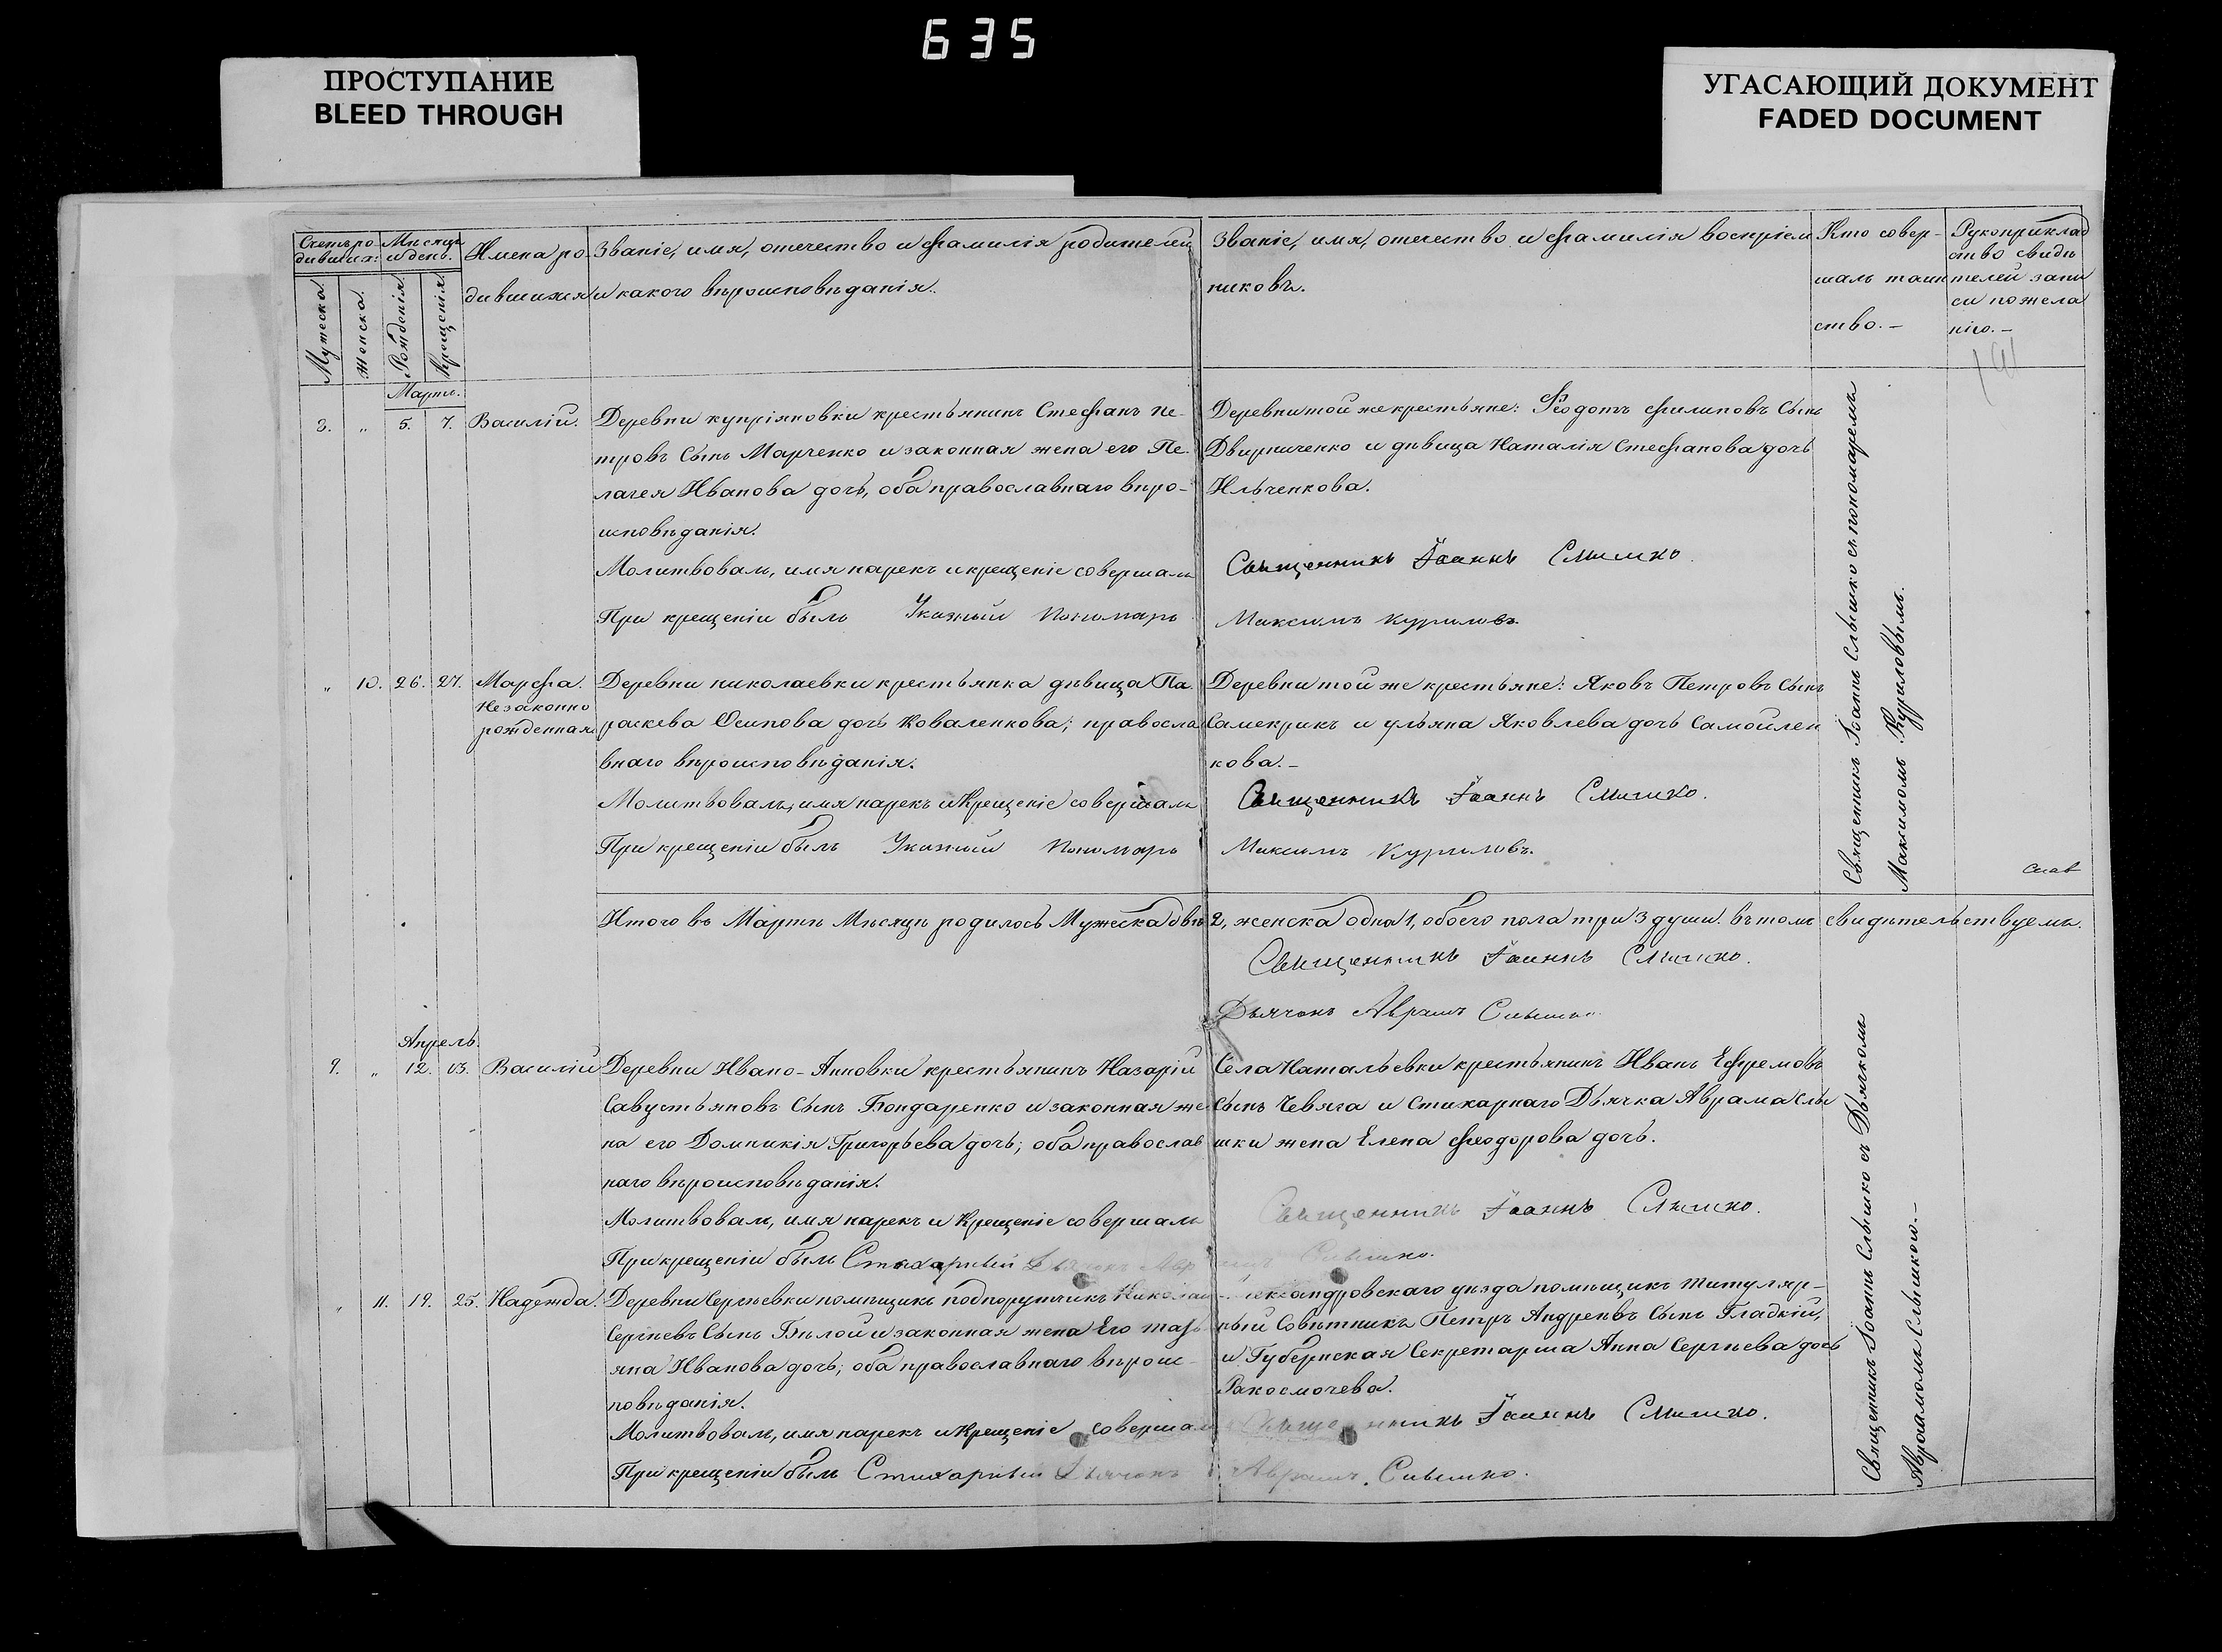 635
ПРОСТУПАНИЕ
BLEED THROUGH
УГАСАЮЩИЙ ДОКУМЕНТ
FADED DOCUMENT
Счетъ ро
дивших:
Мѣсяцъ
и день.
Имена ро
дившихся
Званіе, имя, отечество и фамилія родителей
и какого вѣроисповѣданія.
Званіе, имя, отечество и фамилія воспріем
никовъ.
Кто совер-
шалъ таин
ство.-
Рукоприклад
ство свидѣ
телей запи
си по жела
нію.-
Мужеска.
Женска.
Рожденія.
Крещенія.
Мартъ.
8. „ 5. 7. Василій.
Деревни купріяновки крестьянинъ Стефанъ Пе-
тровъ Сынъ Марченко и законная жена его Пе-
лагея Иванова дочь, оба православнаго вѣро-
исповѣданія.
Молитвовалъ, имя нарекъ и крещеніе совершалъ
При крещеніи былъ Указный Пономарь
Деревни той же крестьяне: Ѳеодотъ филиповъ Сынъ
Двирниченко и дѣвица Наталія Стефанова дочь
Ильченкова.
Священникъ Іоаннъ Слышко.
Максимъ Куриловъ
„ 10. 26. 27. Марфа.
Незаконно
рожденная
Деревни николаевки крестьянка дѣвица Па
раскева Осипова дочь Коваленкова; правосла
внаго вѣроисповѣданія.
Молитвовалъ, имя нарекъ и Крещеніе совершалъ
При крещеніи былъ Указный Пономарь
Деревни той же крестьяне: Яковъ Петровъ Сынъ
Самекрикъ и ульяна Яковлева дочь Самойлен
кова.-
Священникъ Іоаннъ Слышко.
Максимъ Куриловъ.
Священникъ Іоаннъ Слышко съ пономаремъ
Максимомъ Куриловымъ.
Итого въ Мартѣ Мѣсяцѣ родилось Мужеска двѣ 2, женска одна 1, обоего пола три 3 души. въ томъ свидѣтельствуемъ.
Священникъ Іоаннъ Слышко.
Дьячокъ Аврамъ Слышко
Апрель.
9. „ 12. 13. Василій
Деревни Ивано-Анновки крестьянинъ Назарій
Савустьяновъ Сынъ Бондаренко и законная же
на его Домникія Григорьева дочь; оба православ
наго вѣроисповѣданія.
Молитвовалъ, имя нарекъ и Крещеніе совершалъ
При крещеніи былъ Стихарный Дьячокъ Аврамъ Слышко.
Села Натальевки крестьянинъ Иванъ Ефремовъ
Сынъ Чевяга и Стихарнаго Дьячка Аврама Слы
шки жена Елена феодорова дочь.
Священникъ Іоаннъ Слышко.
„ 11. 19. 25. Надежда.
Деревни Сергѣевки помѣщикъ подпорутчикъ Николай
Сергѣевъ Сынъ Бѣлой и законная жена Его татъ
яна Иванова дочь; оба православнаго вѣроис-
повѣданія.
Молитвовалъ, имя нарекъ и Крещеніе совершалъ
При крещеніи былъ Стихарный Дьячокъ
Александровскаго уѣзда помѣщикъ титуляр-
ный Совѣтникъ Петръ Андреевъ Сынъ Гладкій,
и Губернская Секретарша Анна Сергѣева дочь
Священникъ Іоаннъ Слышко.
Аврамъ Слышко.
Священникъ Іоаннъ Слышко съ Дьячкомъ
Авраамомъ Слышкою.-